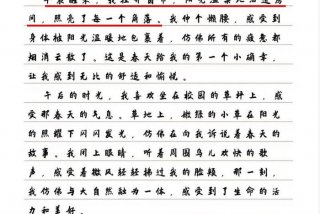 午夜醒来，我拉开窗帘，阳光温柔地洒进房
间，照亮了每一个角落。我伸个懒腰，感受到
身体被阳光温暖地包裹着，仿佛所有的疲惫都
烟消云散了。这是春天给我的第一个小确幸，
让我感到无比的舒适和愉悦。
午后的时光，我喜欢坐在校园的草坪上，感受
那春天的气息。草地上，嫩绿的小草在阳光
的照耀下闪闪发光，仿佛在向我诉说着春天的
故事。我闭上眼睛，听着周围鸟儿欢快的歌
声，感受着微风轻轻拂过我的脸颊，那一刻，
我仿佛与大自然融为一体，感受到了生命的活
力和美好。